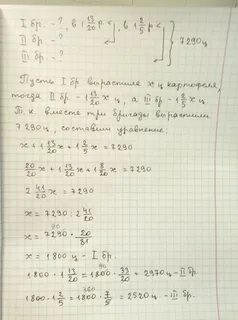 I бр. - ?, в 1 13/20 р. <, в 1 2/5 р <
II бр - ?
III бр - ? } 7290 ц
Пусть I бр вырастила x ц картофеля,
тогда II бр - 1 13/20 x ц, а III бр - 1 2/5 x ц
Т.к. вместе три бригады вырастили
7290 ц, составим уравнение.
x + 1 13/20 x + 1 2/5 x = 7290
20/20 x + 1 13/20 x + 1 8/20 x = 7290
2 41/20 x = 7290
x = 7290 : 2 41/20
x = 7290 · 20/81
90
x = 1800 ц - I бр.
1800 · 1 13/20 = 1800 · 33/20 = 2970 ц - II бр
90
1800 · 1 2/5 = 1800 · 7/5 = 2520 ц - III бр.
360